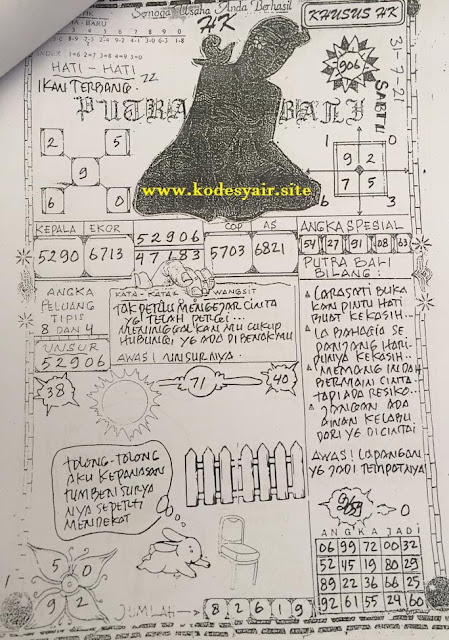 Semoga Usaha Anda Berhasil
HK
KHUSUS HK
A - BARU
INDEX 1=6 2=7 3=8 4=9 5=0
HATI - HATI
IKAN TERBANG
PUTRA BALI
31-7-21
SABTU
906
2 5
7
6 0
1 0
9 2
7 5
6 3
www.kodesyair.site
KEPALA EKOR
5290 6713
52906
47183
COP AS
5703 6821
ANGKA SPESIAL
54 27 91 08 63
PUTRA BALI
BILANG :
LARASATI BUKA
KAN PINTU HATI
BUAT KEKASIH..
LA BAHAGIA SE
PANJANG HARI
PUNYA KEKASIH..
MEMANG INDAH
BERMAIN CINTA
TAPI ADA RESIKO..
JANGAN ADA
AWAN KELABU
DARI YG DICINTAI
AWAS! LAPANGAN
YG JADI TEMPATNYA!
ANGKA
PELUANG
TIPIS
8 DAN 4
UNSUR
52906
KATA - KATA WANGSIT
TAK PERLU MENGEJAR CINTA
YG TELAH PERGI...
MENINGGALKAN MU CUKUP
HUBUNGI YG ADA DI BENAKMU
AWAS! UNSURNYA
38
71
40
TOLONG-TOLONG
AKU KEPANASAN
TUMBEN SURYA
NYA SEPERTI
MENDEKAT
0
ANGKA JADI
06 99 72 00 32
52 45 19 80 29
89 22 36 66 25
92 61 55 24 60
5 0
9 2
JUMLAH
8 2 6 1 9